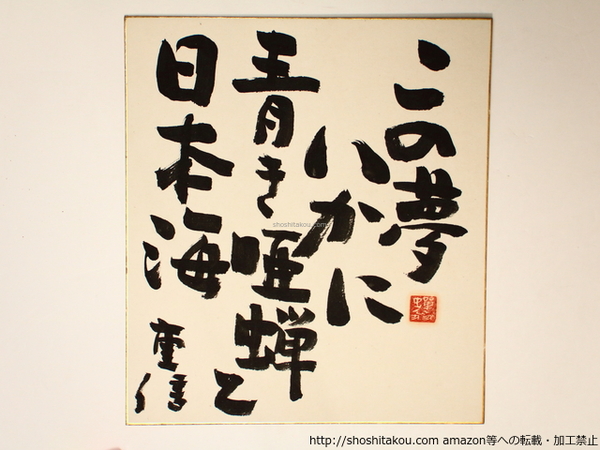 この夢
いかに
青き啞蟬と
日本海
重信
shoshitakou.com
http://shoshitakou.com amazon等への転載・加工禁止